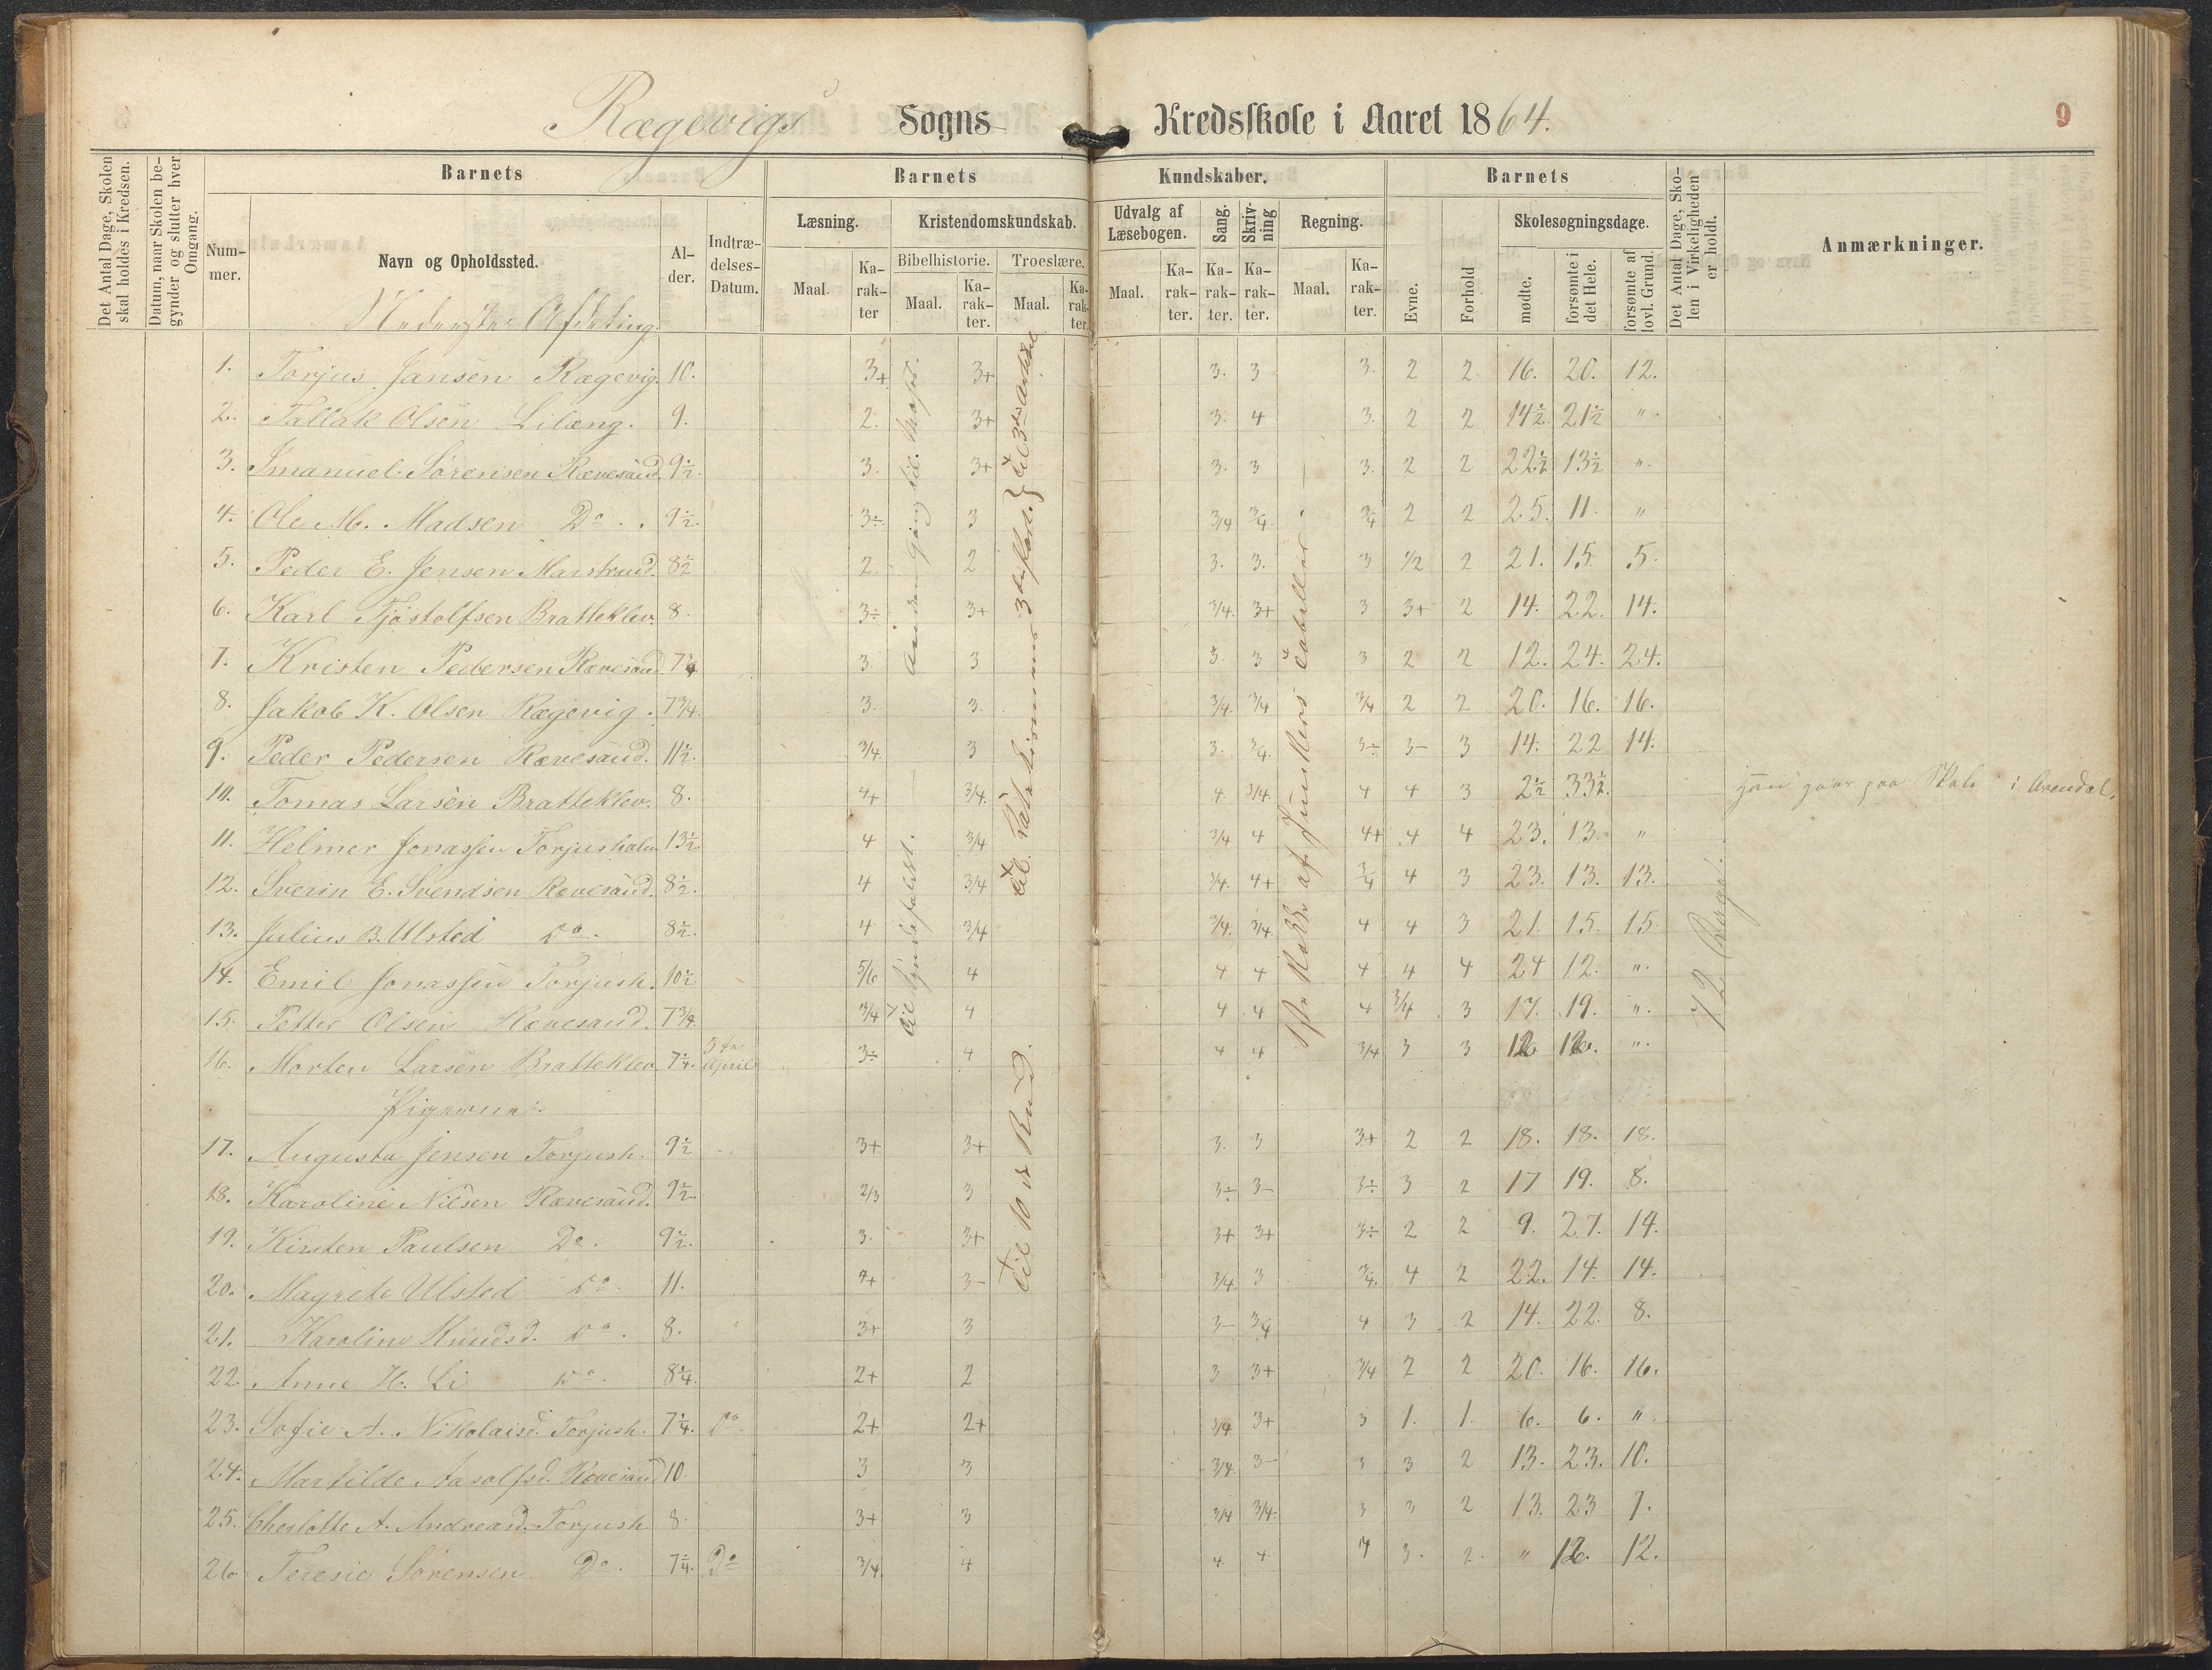 Rægevigs Sogns Kredsskole i Aaret 1864. 9
Det Antal Dage, Skolen skal holdes i Kredsen.
Datum, naar Skolen begynder og slutter hver Omgang.
Barnets Barnets Kundskaber. Barnets
Det Antal Dage, Skolen i Virkeligheden er holdt.
Anmærkninger.
Nummer. Navn og Opholdssted. Alder. Indtrædelses-Datum.
Læsning. Kristendomskundskab. Udvalg af Læsebogen. Sang. Skrivning Regning. Evne. Forhold Skolesøgningsdage.
Maal. Karakter Bibelhistorie. Maal. Karakter. Troeslære. Maal. Karakter. Maal. Karakter. Karakter. Karakter. Maal. Karakter. mødte. forsømte i det Hele. forsømte af lovl. Grund.
Nederste Afdeling.
1. Torjus Jansen Rægevig. 10. 3+ 3+ 3. 3 3. 2 2 16. 20. 12.
2. Tallak Olsen Lilæng. 9. 2. 3+ 3. 4 3. 2 2 14½ 21½ "
3. Imanuel Sørensen Rævesand. 9½. 3. 3+ 3. 3 3. 2 2 22½ 13½ "
4. Ole M. Madsen Do. 9½. 3÷ 3 3/4 3/4 3/4 2 2 25. 11. "
5. Peder E. Jensen Marstrand. 8½ 2. 2 3. 3. 3 1/2 2 21. 15. 5.
6. Karl Tjøstolfsen Bratteklev. 8. 3÷ 3+ 3/4. 3+ 3 3+ 2 14. 22. 14.
7. Kristen Pedersen Rævesand. 7¾ 3. 3 3. 3 3 2 2 12. 24. 24.
8. Jakob K. Olsen Rægevig. 7¾. 3. 3. 3/4. 3/4 3/4 2 2 20. 16. 16.
9. Peder Pedersen Rævesand. 11½. 3/4. 3 3. 3/4. 3÷ 3- 3 14. 22 14.
10. Tomas Larsen Bratteklev. 8. 4+ 3/4. 4. 3/4. 4 4 3 2½ 33½. Han gaar paa Skole i Arendal.
11. Helmer Jonassen Torjusholm 13½ 4 3/4 3/4 4 4+ 4 4 23. 13. "
12. Sverin E. Svendsen Rævesand. 8½. 4 3/4 3/4. 4+ 3/4 4 3 23. 13. 13.
13. Julius B. Ulsted Do. 8½. 4 3/4 3/4. 3/4 4 4 3 21. 15. 15.
14. Emil Jonassen Torjush. 10½ 5/6 4 4 4 4 4 4 24 12. "
15. Petter Olsen Rævesand. 7¾. 3/4 4 4 4 4 3/4 3 17. 19. "
16. Morten Larsen Bratteklev 7¼. April 3÷ 4 4 4 3/4 3 3 "
Pigerne.
17. Augusta Jensen Torjush. 9½ 3+ 3+ 3. 3 3+ 2 2 18. 18. 18.
18. Karoline Nilsen Rævesand. 9½. 2/3 3 3÷ 3- 3÷ 3 2 17 19. 8.
19. Kirsten Paulsen Do. 9½. 3. 3+ 3+ 3+ 3÷ 2 2 9. 27. 14.
20. Magrete Ulsted Do. 11. 4+ 3- 3/4. 3 3/4. 4 2 22. 14. 14.
21. Karoline Knudsd. Do. 8. 3+ 3 3- 3/4 4 3 2 14. 22. 8.
22. Anne H. Li Do. 8¼. 2+ 2 3 3+ 3/4 2 2 20. 16. 16.
23. Sofie A. Nikolaisd. Torjush. 7¼. Do. 2+ 2+ 3/4 3+ 3 1. 1. 6. 6. "
24. Martilde Aasolfsd. Rævesand 10. 3 3 3/4. 3- 3 3 2 13. 23. 10.
25. Cherlotte A. Andreasd. Torjush. 8. 3+ 3 3/4 3/4. 3 3 2 13. 23 7.
26. Teresie Sørensen Do. 7¼. Do 3/4. 4 4. 4 4 3. 2. " 12. 12.
Anden Gang til
til Syndefaldet.
til 3die Artikel
til 10de Bud.
1ste Række af Junkers Tabeller
72 Dage.